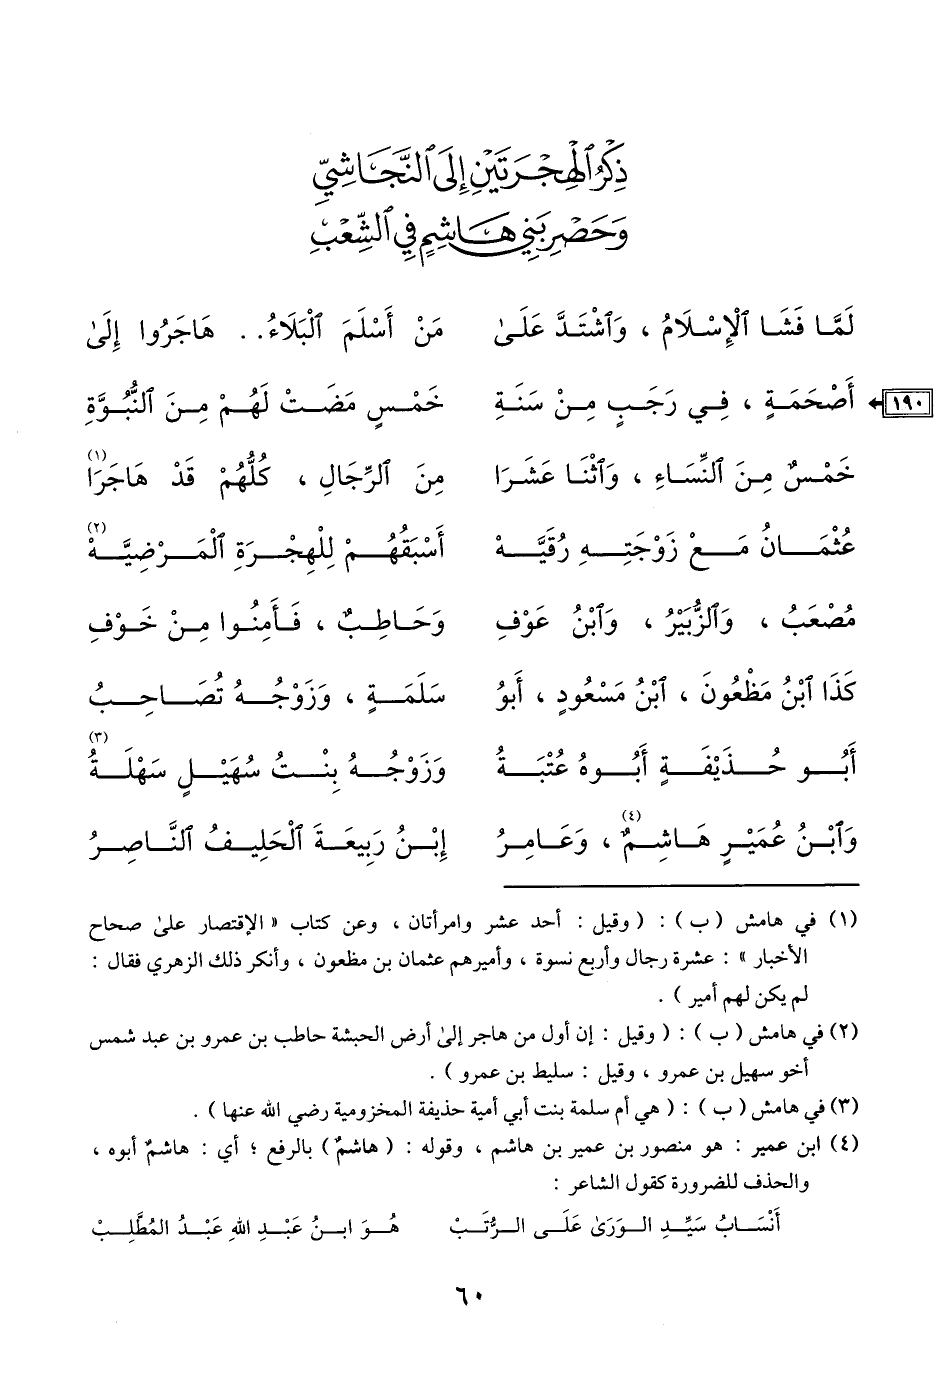 ذِكْرُ ٱلْهِجْرَتَيْنِ إِلَى ٱلنَّجَاشِيِّ
وَحَصْرِ بَنِي هَاشِمٍ فِي ٱلشِّعْبِ
لَمَّا فَشَا ٱلْإِسْلَامُ ، وَٱشْتَدَّ عَلَىٰ مَنْ أَسْلَمَ ٱلْبَلَاءُ.. هَاجَرُوا إِلَىٰ
١٩٠ أَصْحَمَةٍ ، فِي رَجَبٍ مِنْ سَنَةِ خَمْسٍ مَضَتْ لَهُمْ مِنَ ٱلنُّبُوَّةِ
خَمْسٌ مِنَ ٱلنِّسَاءِ ، وَٱثْنَا عَشَرَا مِنَ ٱلرِّجَالِ ، كُلُّهُمْ قَدْ هَاجَرَا(١)
عُثْمَانُ مَعْ زَوْجَتِهِ رُقَيَّهْ أَسْبَقُهُمْ لِلْهِجْرَةِ ٱلْمَرْضِيَّهْ(٢)
مُصْعَبُ ، وَٱلزُّبَيْرُ ، وَٱبْنُ عَوْفِ وَحَاطِبٌ ، فَأَمِنُوا مِنْ خَوْفِ
كَذَا ٱبْنُ مَظْعُونَ ، ٱبْنُ مَسْعُودٍ ، أَبُو سَلَمَةٍ ، وَزَوْجُهُ تُصَاحِبُ
أَبُو حُذَيْفَةٍ أَبُوهُ عُتْبَةُ وَزَوْجُهُ بِنْتُ سُهَيْلٍ سَهْلَةُ(٣)
وَٱبْنُ عُمَيْرٍ هَاشِمٌ(٤) ، وَعَامِرُ إِبْنُ رَبِيعَةَ ٱلْحَلِيفُ ٱلنَّاصِرُ
(١) في هامش ( ب ) : ( وقيل : أحد عشر وامرأتان ، وعن كتاب « الإقتصار علىٰ صحاح
الأخبار » : عشرة رجال وأربع نسوة ، وأميرهم عثمان بن مظعون ، وأنكر ذلك الزهري فقال :
لم يكن لهم أمير ) .
(٢) في هامش ( ب ) : ( وقيل : إن أول من هاجر إلىٰ أرض الحبشة حاطب بن عمرو بن عبد شمس
أخو سهيل بن عمرو ، وقيل : سليط بن عمرو ) .
(٣) في هامش ( ب ) : ( هي أم سلمة بنت أبي أمية حذيفة المخزومية رضي الله عنها ) .
(٤) ابن عمير : هو منصور بن عمير بن هاشم ، وقوله : ( هاشمٌ ) بالرفع ؛ أي : هاشمٌ أبوه ،
والحذف للضرورة كقول الشاعر :
أَنْسَابُ سَيِّدِ الوَرَىٰ عَلَى الرُّتَبْ هُوَ ابنُ عَبْدِ اللهِ عَبْدُ المُطَّلِبْ
٦٠